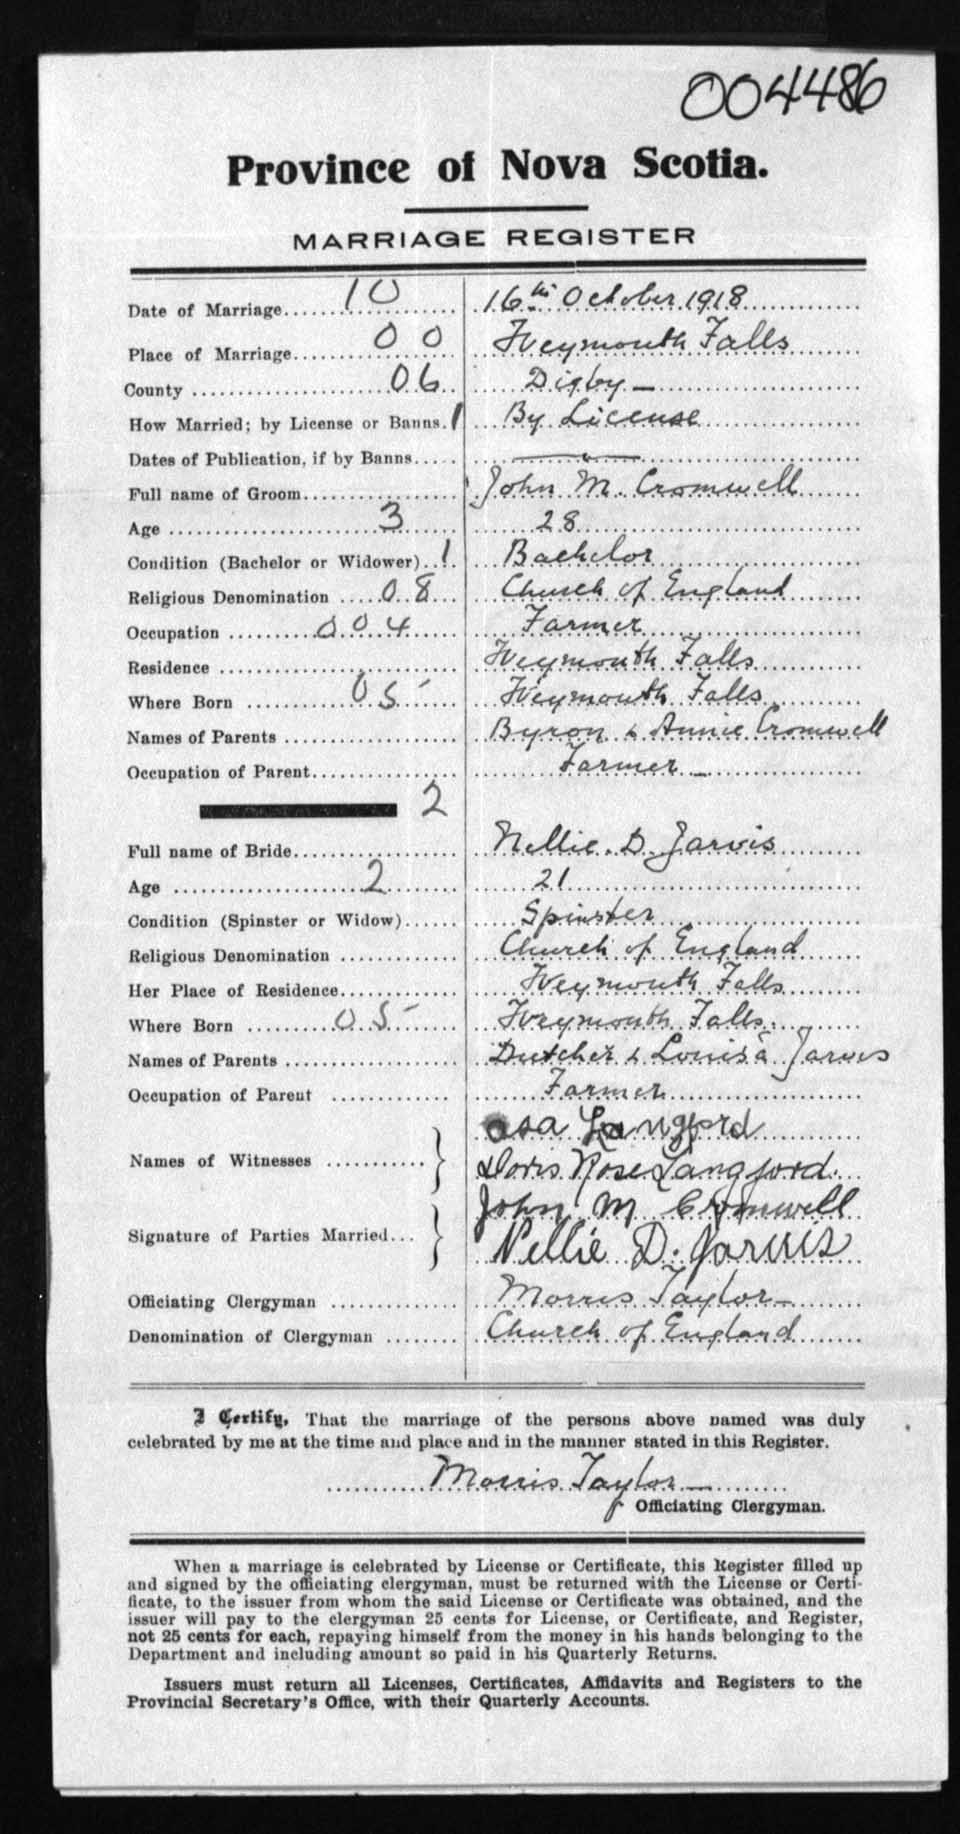 004486
Province of Nova Scotia.
MARRIAGE REGISTER
Date of Marriage 10 16th October 1918
Place of Marriage 00 Weymouth Falls
County 06 Digby —
How Married; by License or Banns. 1 By License
Dates of Publication, if by Banns
Full name of Groom John M. Cromwell
Age 3 28
Condition (Bachelor or Widower) 1 Bachelor
Religious Denomination 08 Church of England
Occupation 004 Farmer
Residence Weymouth Falls
Where Born 05 Weymouth Falls
Names of Parents Byron & Annie Cromwell
Occupation of Parent Farmer —
2
Full name of Bride Nellie D Jarvis
Age 2 21
Condition (Spinster or Widow) Spinster
Religious Denomination Church of England
Her Place of Residence Weymouth Falls
Where Born 05 Weymouth Falls
Names of Parents Dutcher & Louisa Jarvis
Occupation of Parent Farmer
Asa Langford
Names of Witnesses
Doris Rose Langford.
John M Cromwell
Signature of Parties Married
Nellie D. Jarvis
Officiating Clergyman Morris Taylor —
Denomination of Clergyman Church of England
I Certify, That the marriage of the persons above named was duly
celebrated by me at the time and place and in the manner stated in this Register.
Morris Taylor —
Officiating Clergyman.
When a marriage is celebrated by License or Certificate, this Register filled up
and signed by the officiating clergyman, must be returned with the License or Certi-
ficate, to the issuer from whom the said License or Certificate was obtained, and the
issuer will pay to the clergyman 25 cents for License, or Certificate, and Register,
not 25 cents for each, repaying himself from the money in his hands belonging to the
Department and including amount so paid in his Quarterly Returns.
Issuers must return all Licenses, Certificates, Affidavits and Registers to the
Provincial Secretary's Office, with their Quarterly Accounts.